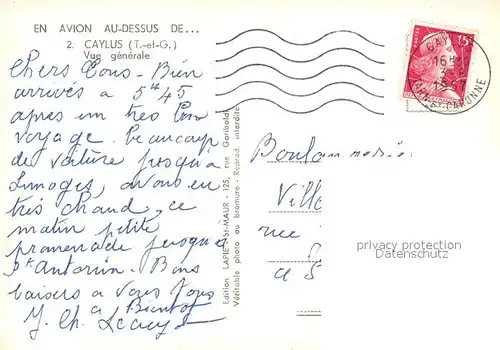 EN AVION AU-DESSUS DE...
2. CAYLUS (T.-et-G.)
Vue générale
Chers Tous - Bien
arrivés à 5h 45
après un très bon
voyage. Beaucoup
de voiture jusqu'à
Limoges, avons eu
très chaud, ce
matin petite
promenade jusque
St Antonin. Bons
baisers à vous Tous
à Bientôt
J. Ch.
Edition LAPIE - St-MAUR - 125, rue Garibaldi
Véritable photo au bromure - Reprod. interdite
15F
POSTES
16H
3-8
1957
TARN-ET-GARONNE
Ville
rue
à 5
privacy protection
Datenschutz